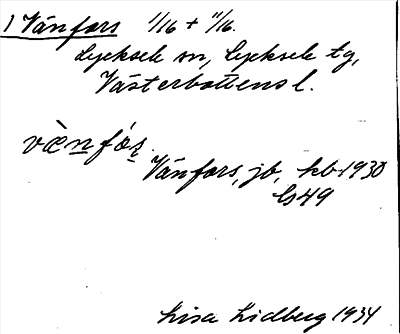 1 Vänfors 1/16 + 11/16.
Lycksele sn, Lycksele tg,
Västerbottens l.
vὲnfós.
Vänfors, jb, kbr 1930
bs49
Lisa Lidberg 1934